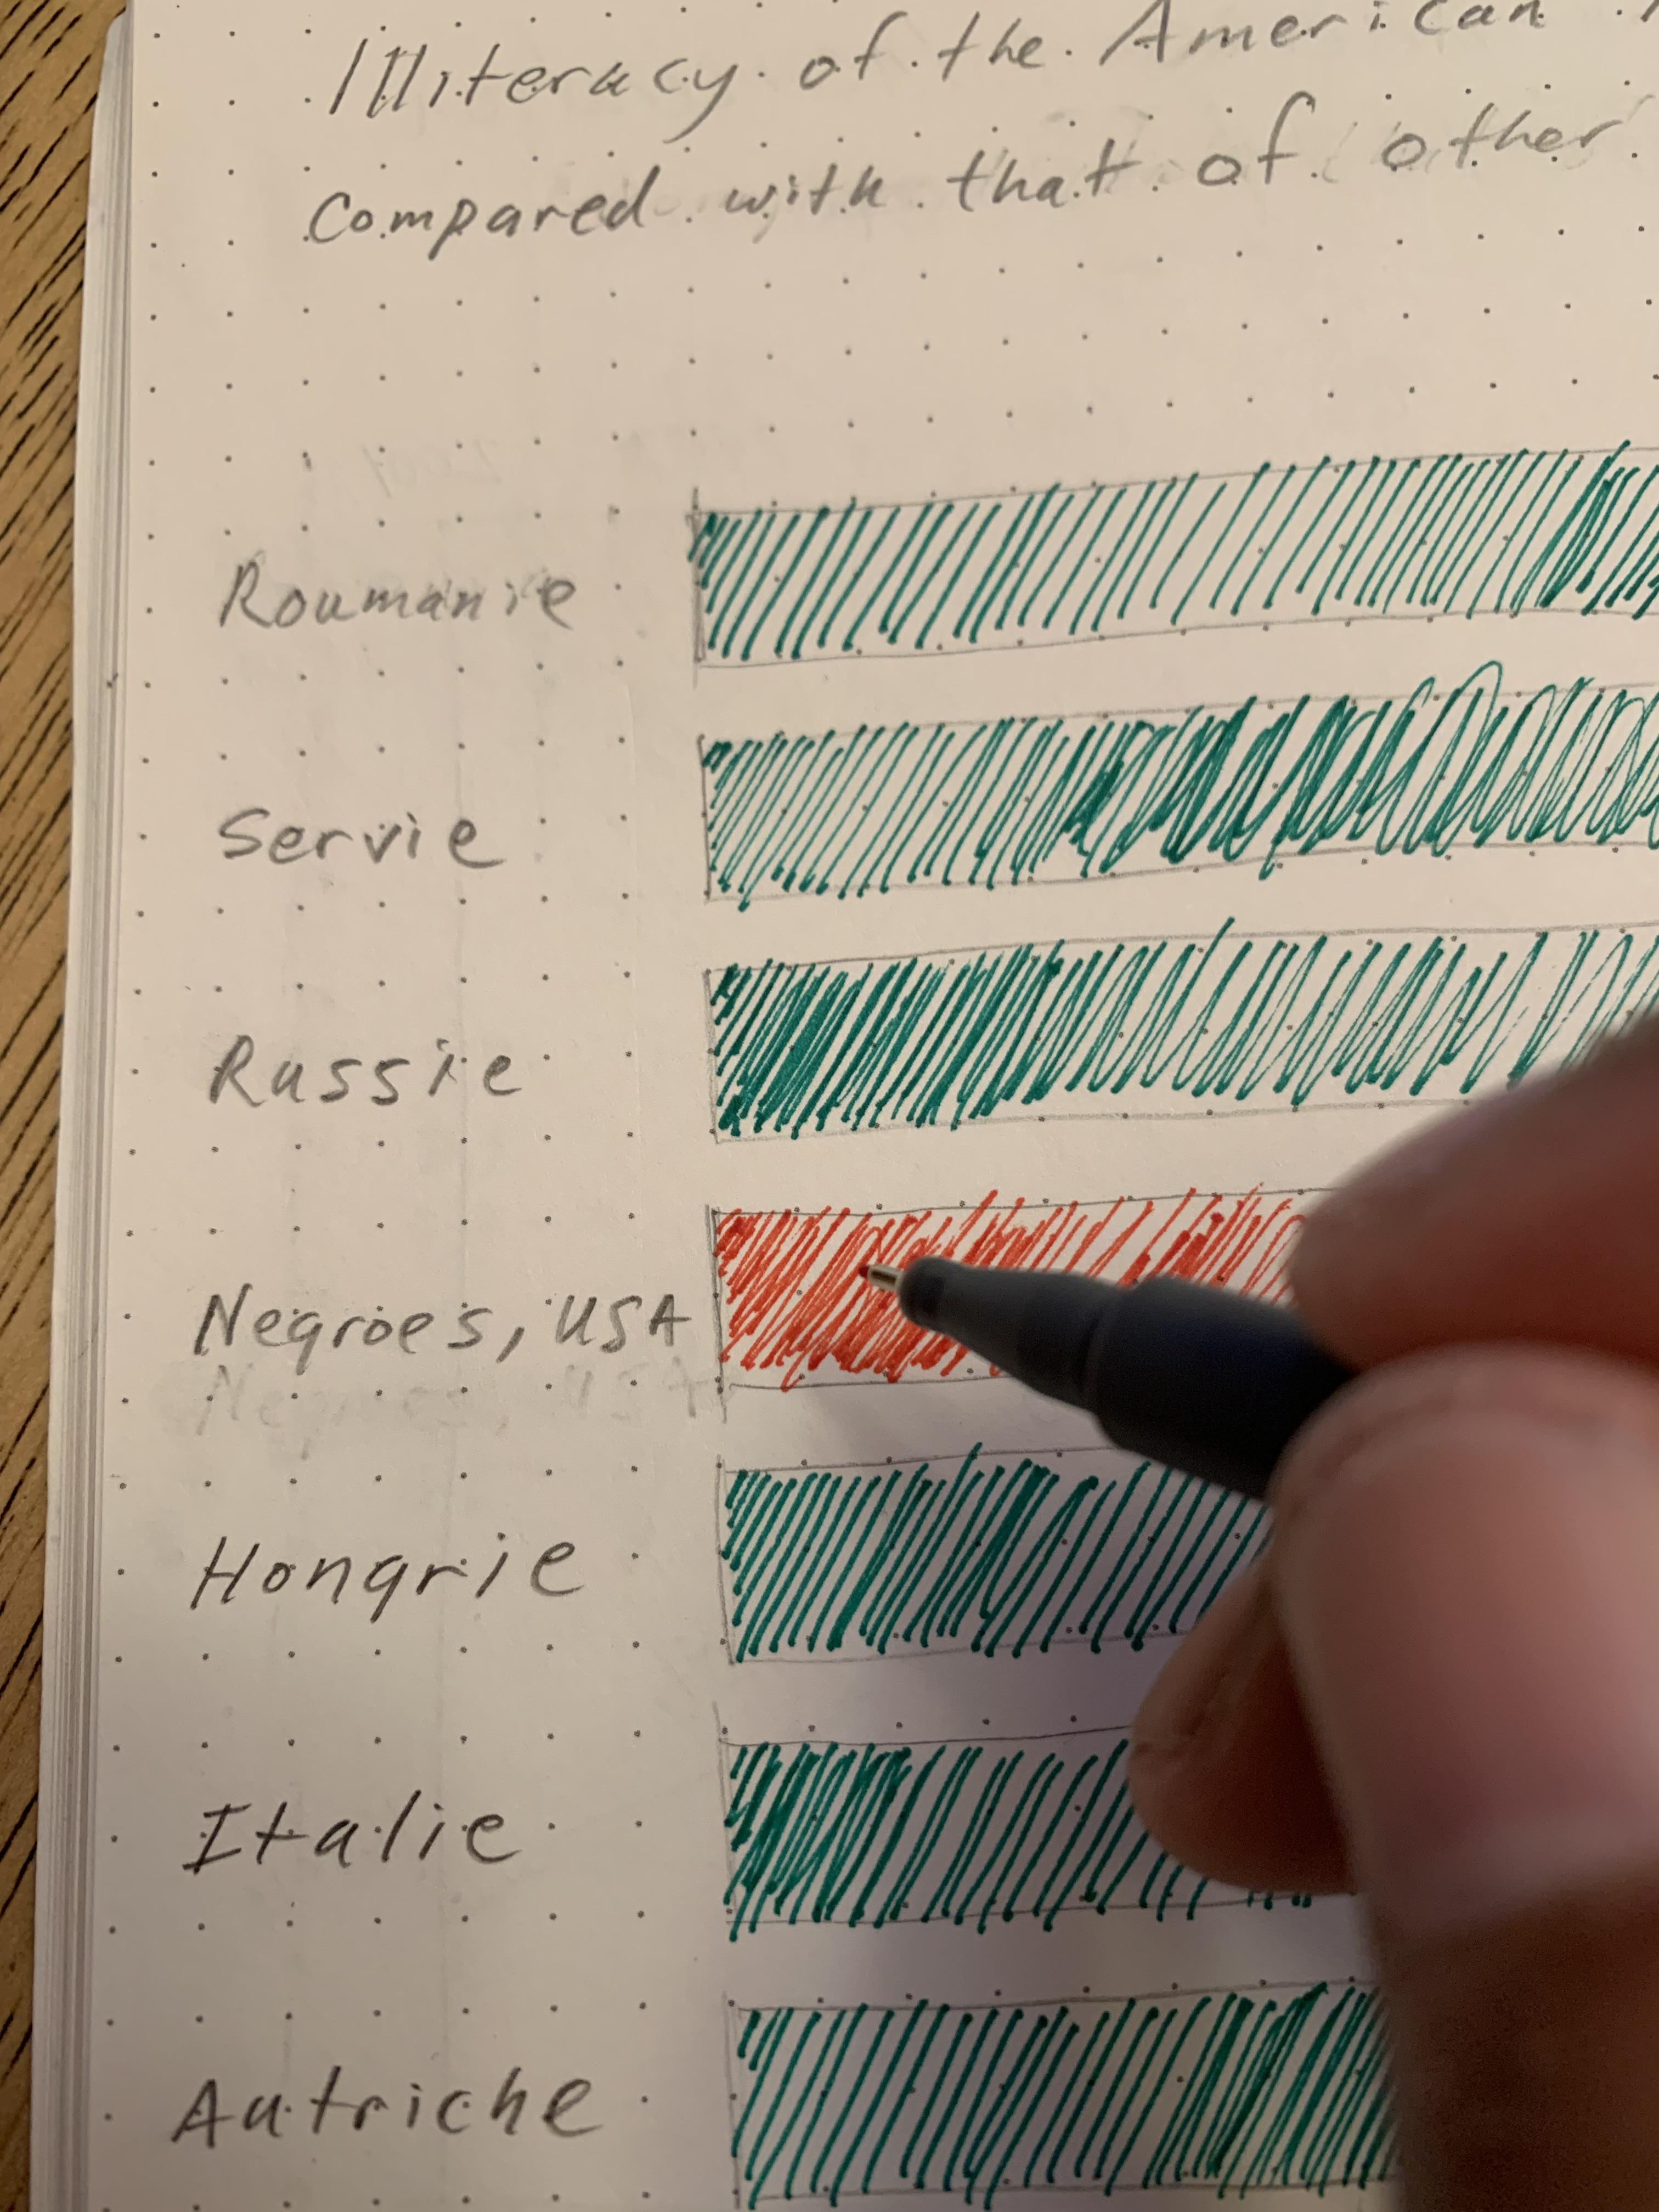 Illiteracy of the American
Compared with that of other
Roumanie
Servie
Russie
Negroes, USA
Hongrie
Italie
Autriche